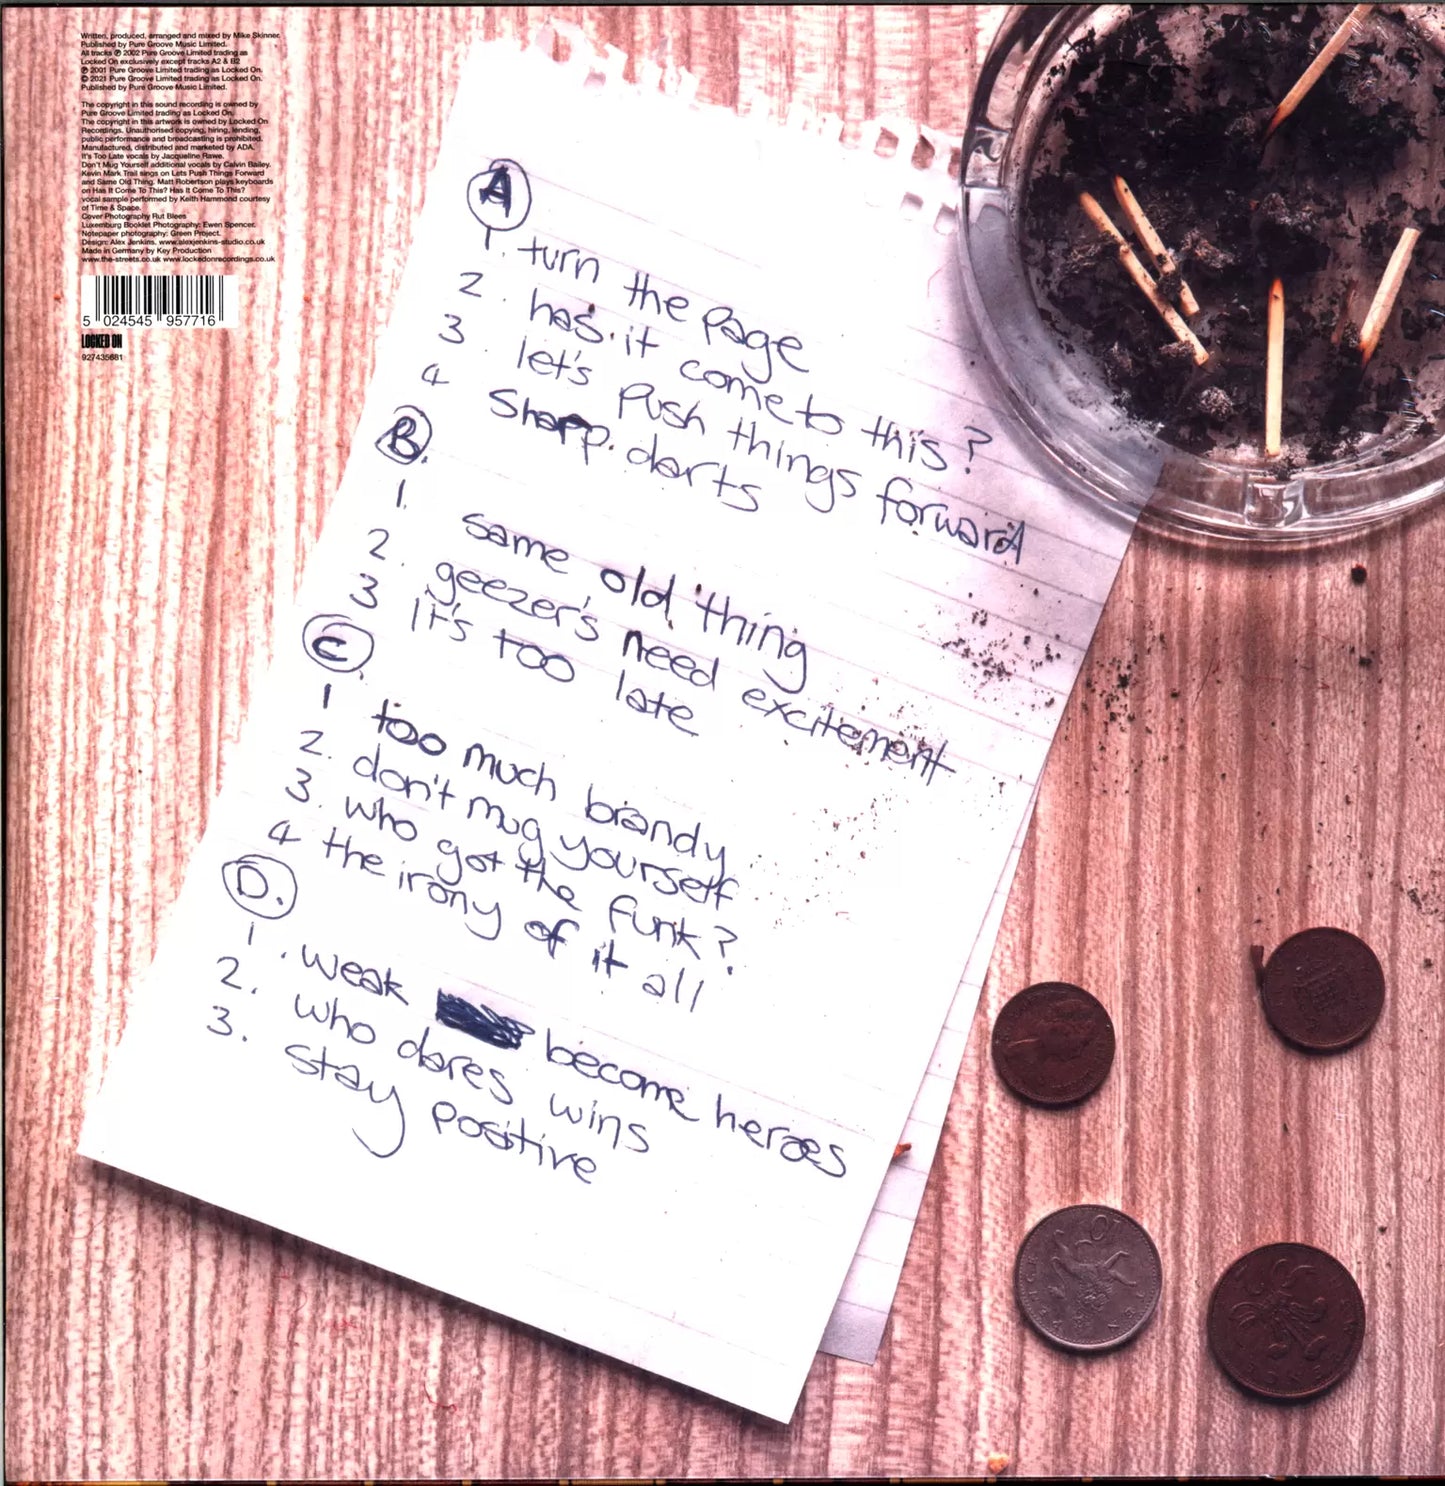 Written, produced, arranged and mixed by Mike Skinner.
Published by Pure Groove Music Limited.
All tracks ℗ 2002 Pure Groove Limited trading as
Locked On exclusively except tracks A2 & B2
℗ 2001 Pure Groove Limited trading as Locked On.
© 2021 Pure Groove Limited trading as Locked On.
Published by Pure Groove Music Limited.
The copyright in this sound recording is owned by
Pure Groove Limited trading as Locked On.
The copyright in this artwork is owned by Locked On
Recordings. Unauthorised copying, hiring, lending,
public performance and broadcasting is prohibited.
Manufactured, distributed and marketed by ADA.
It's Too Late vocals by Jacqueline Rawe.
Don't Mug Yourself additional vocals by Calvin Bailey.
Kevin Mark Trail sings on Lets Push Things Forward
and Same Old Thing. Matt Robertson plays keyboards
on Has It Come To This? Has It Come To This?
vocal sample performed by Keith Hammond courtesy
of Time & Space.
Cover Photography Rut Blees
Luxemburg Booklet Photography: Ewen Spencer.
Notepaper photography: Green Project.
Design: Alex Jenkins. www.alexjenkins-studio.co.uk
Made in Germany by Key Production
www.the-streets.co.uk www.lockedonrecordings.co.uk
5 024545 957716
LOCKED ON
927435681
A
1. turn the page
2. has it come to this?
3. let's push things forward
4 Sharp darts
B.
1. same old thing
2. geezer's need excitement
3 It's too late
C.
1 too much brandy
2. don't mug yourself
3. who got the funk?
4 the irony of it all
D.
1. weak become heroes
2. who dares wins
3. stay positive
10